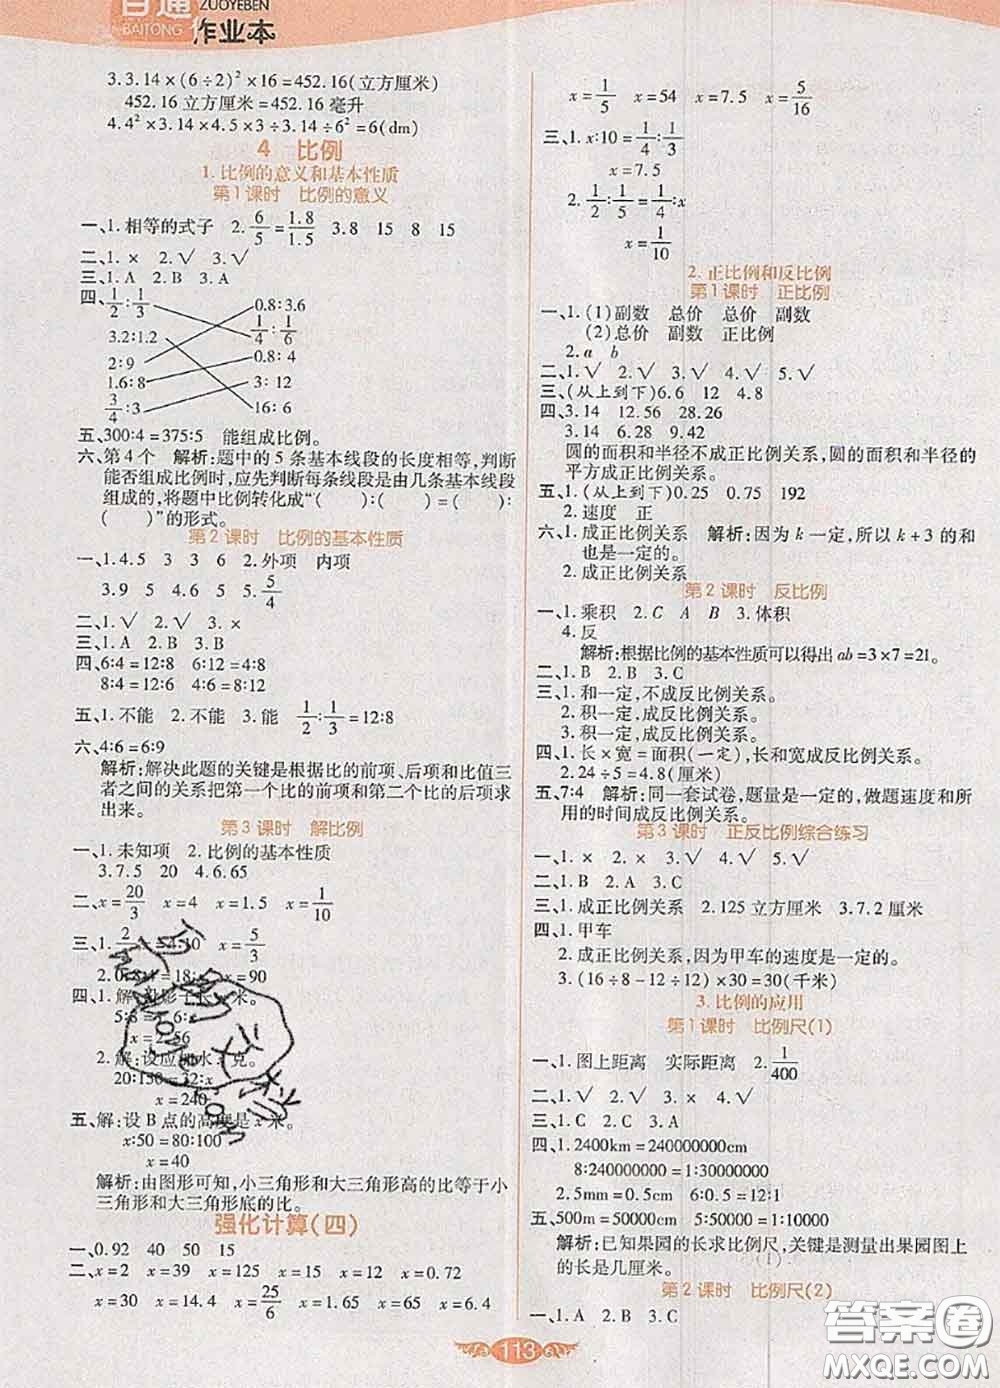 百通
ZUOYEBEN
BAITONG
作业本
3.3.14×(6÷2)²×16=452.16(立方厘米)
452.16立方厘米=452.16毫升
4.4²×3.14×4.5×3÷3.14÷6²=6(dm)
4 比例
1.比例的意义和基本性质
第1课时 比例的意义
一、1.相等的式子 2.6/5=1.8/1.5 3.8 15 8 15
二、1.× 2.√ 3.√
三、1.A 2.B 3.A
四、1/2:1/3 0.8:3.6
3.2:1.2 1/4:1/6
2:9 0.8:4
1.6:8 3:12
3/4:3 16:6
五、300:4=375:5 能组成比例。
六、第4个 解析:题中的5条基本线段的长度相等,判断
能否组成比例时,应先判断每条线段是由几条基本线段
组成的,将题中比例转化成“( ):( )=( ):
( )”的形式。
第2课时 比例的基本性质
一、1.4.5 3 3 6 2.外项 内项
3.9 5 4.6 5.5/4
二、1.√ 2.√ 3.×
三、1.A 2.B 3.A
四、6:4=12:8 6:12=4:8
8:4=12:6 4:6=8:12
五、1.不能 2.不能 3.能 1/2:1/3=12:8
六、4:6=6:9
解析:解决此题的关键是根据比的前项、后项和比值三
者之间的关系把第一个比的前项和第二个比的后项求
出来。
第3课时 解比例
一、1.未知项 2.比例的基本性质
3.7.5 20 4.6.65
二、x=20/3 x=4 x=1.5 x=1/10
三、1. x=5/3
2. x=90
四、1.解: 米。
2.解:设应加水x克。
x=240
五、解:设B点的高度是x米。
x:50=80:100
x=40
解析:由图形可知,小三角形和大三角形高的比等于小
三角形和大三角形底的比。
强化计算(四)
一、0.92 40 50 15
二、x=2 x=39 x=125 x=15 x=12 x=0.72
x=30 x=14.4 x=25/6 x=1.65 x=65 x=6.4
x=1/5 x=54 x=7.5 x=5/16
三、1.x:10=1/4:1/3
x=7.5
2.1/2:1/5=1/4:x
x=1/10
2.正比例和反比例
第1课时 正比例
一、1.(1)副数 总价 总价 副数
(2)总价 副数 正比例
2.a b
二、1.√ 2.√ 3.√ 4.√ 5.√
三、(从上到下)6.6 12 4.8
四、3.14 12.56 28.26
3.14 6.28 9.42
圆的面积和半径不成正比例关系,圆的面积和半径的
平方成正比例关系。
五、1.(从上到下)0.25 0.75 192
2.速度 正
六、1.成正比例关系 解析:因为k一定,所以k+3的和
也是一定的。
2.成正比例关系
第2课时 反比例
一、1.乘积 2.C A B 3.体积
4.反
解析:根据比例的基本性质可以得出ab=3×7=21。
二、1.B 2.B 3.A
三、1.和一定,不成反比例关系。
2.积一定,成反比例关系。
3.积一定,成反比例关系。
四、1.长×宽=面积(一定),长和宽成反比例关系。
2.24÷5=4.8(厘米)
五、7:4 解析:同一套试卷,题量是一定的,做题速度和所
用的时间成反比例关系。
第3课时 正反比例综合练习
一、1.× 2.× 3.√ 4.√ 5.√
二、1.B 2.A 3.C
三、1.成正比例关系 2.125立方厘米 3.7.2厘米
四、1.甲车
2.成正比例关系,因为甲车的速度是一定的。
3.(16÷8-12÷12)×30=30(千米)
3.比例的应用
第1课时 比例尺(1)
一、1.图上距离 实际距离 2.1/400
二、1.√ 2.√ 3.√ 4.√
三、1.C 2.C 3.A
四、1.2400km=240000000cm
8:240000000=1:30000000
2.5mm=0.5cm 6:0.5=12:1
五、500m=50000cm 5:50000=1:10000
解析:已知果园的长求比例尺,关键是测量出果园图上
的长是几厘米。
第2课时 比例尺(2)
一、1.A 2.B 3.C
113
答案圈
MXQE.COM